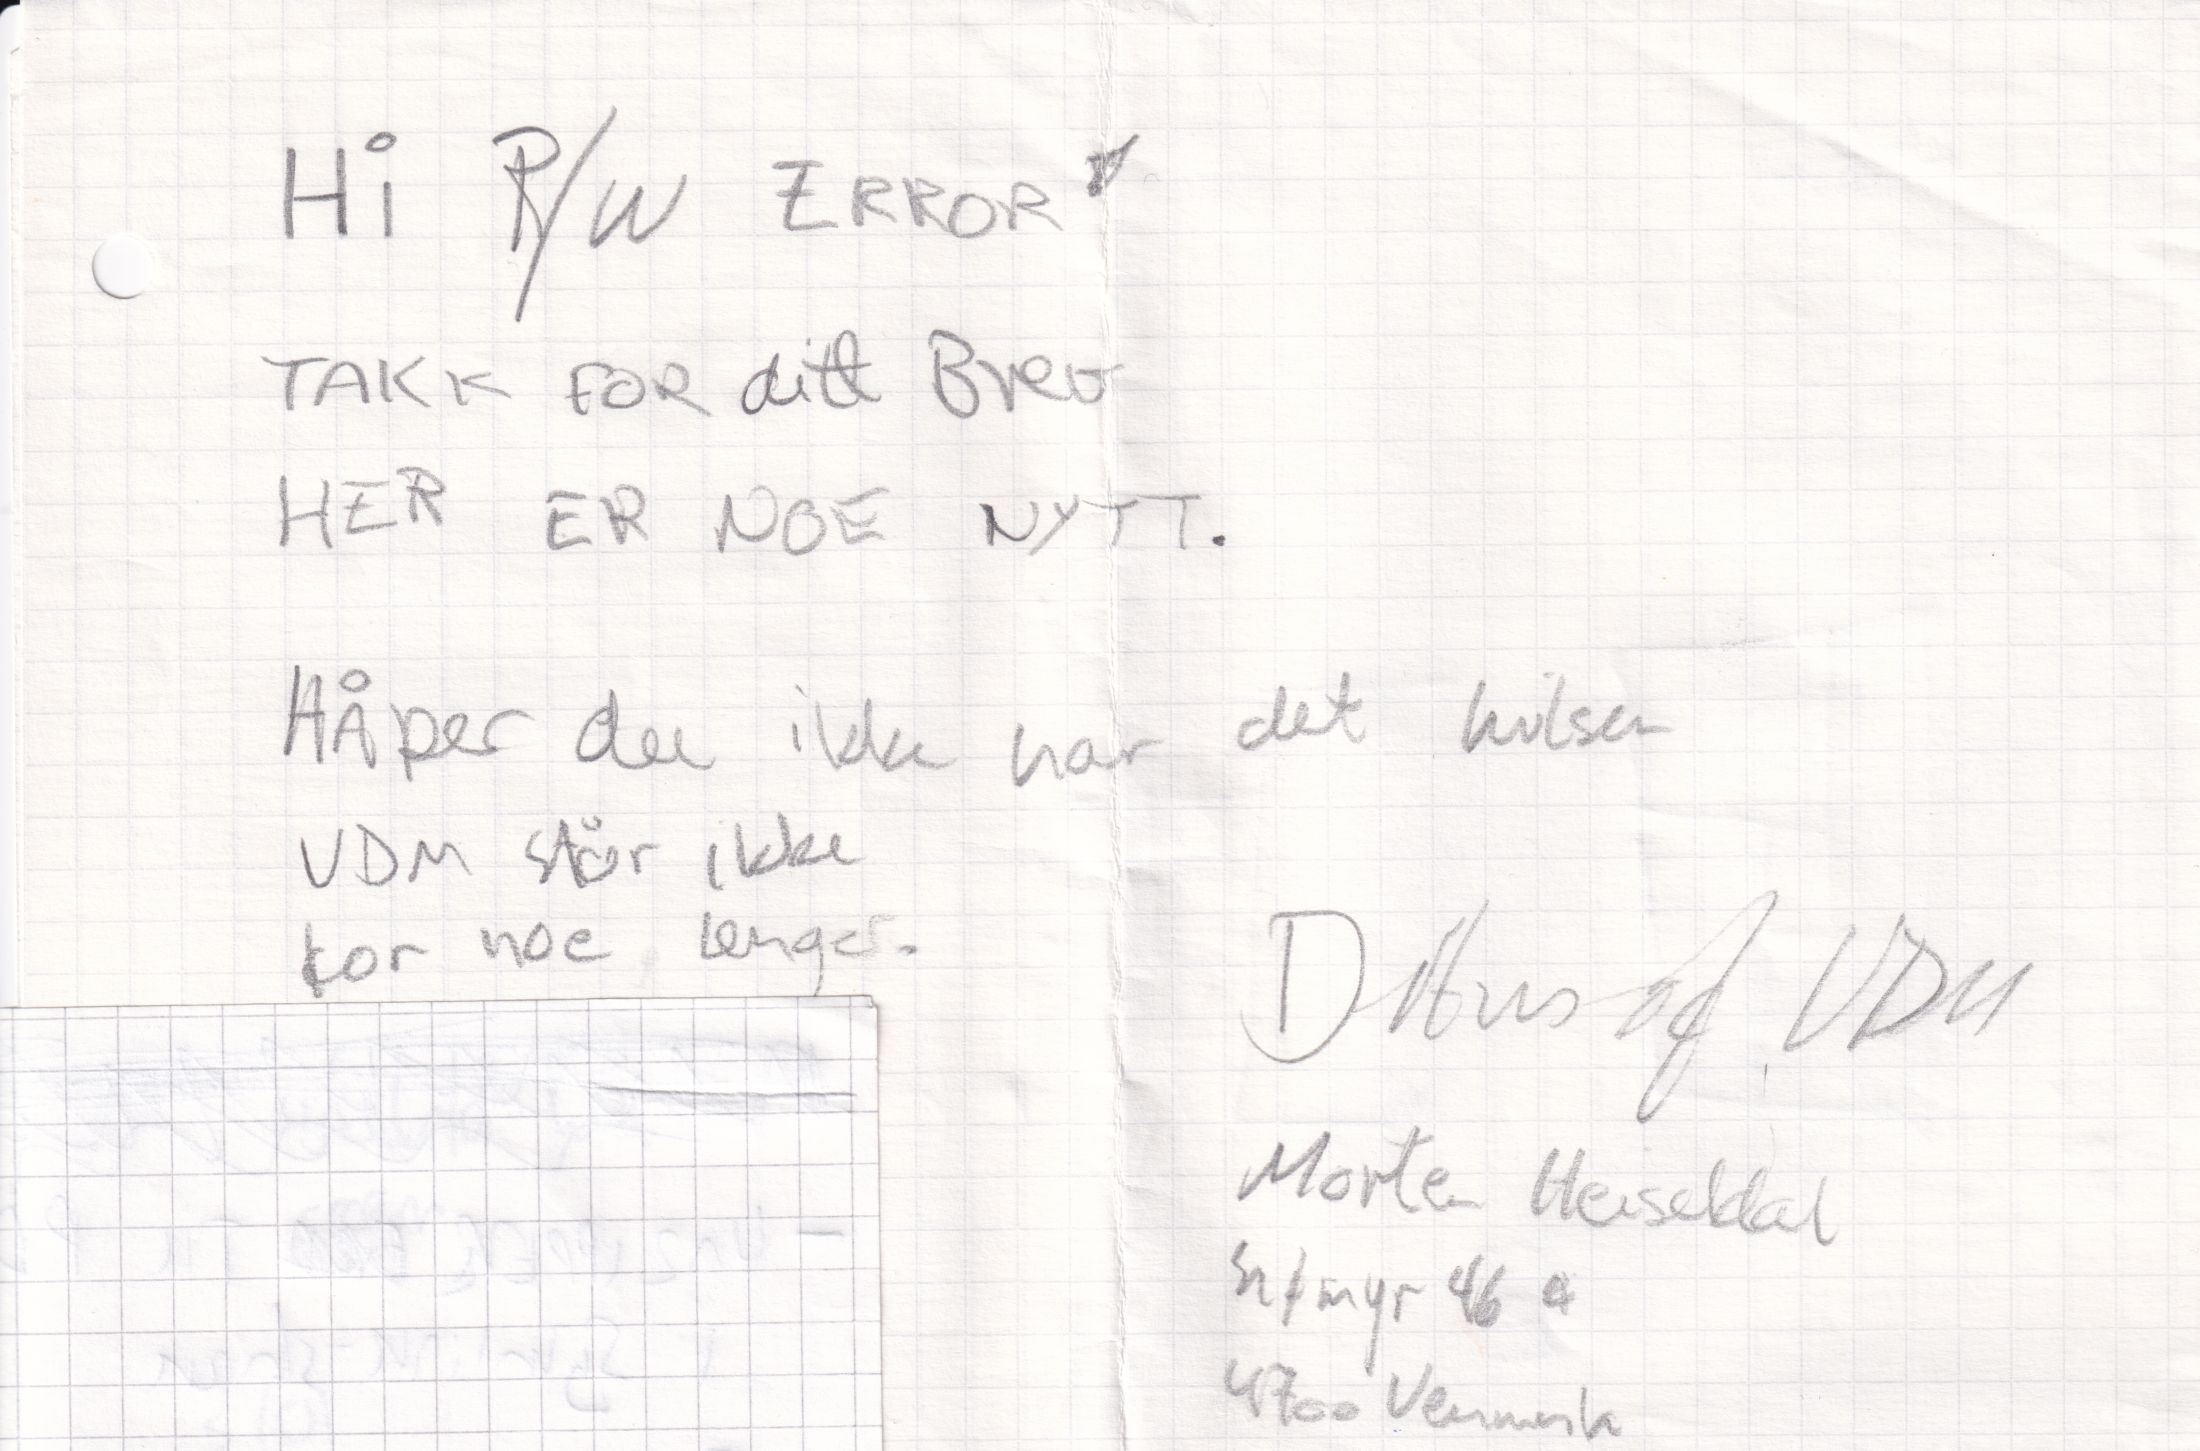 Hi R/W ERROR
TAKK FOR ditt Brev
HER ER NOE NYTT.
HÅper du ikke har det hilsen
VDM står ikke
for noe lenger.
of VDM
Morten
myr 46 a
4700 Vennesla